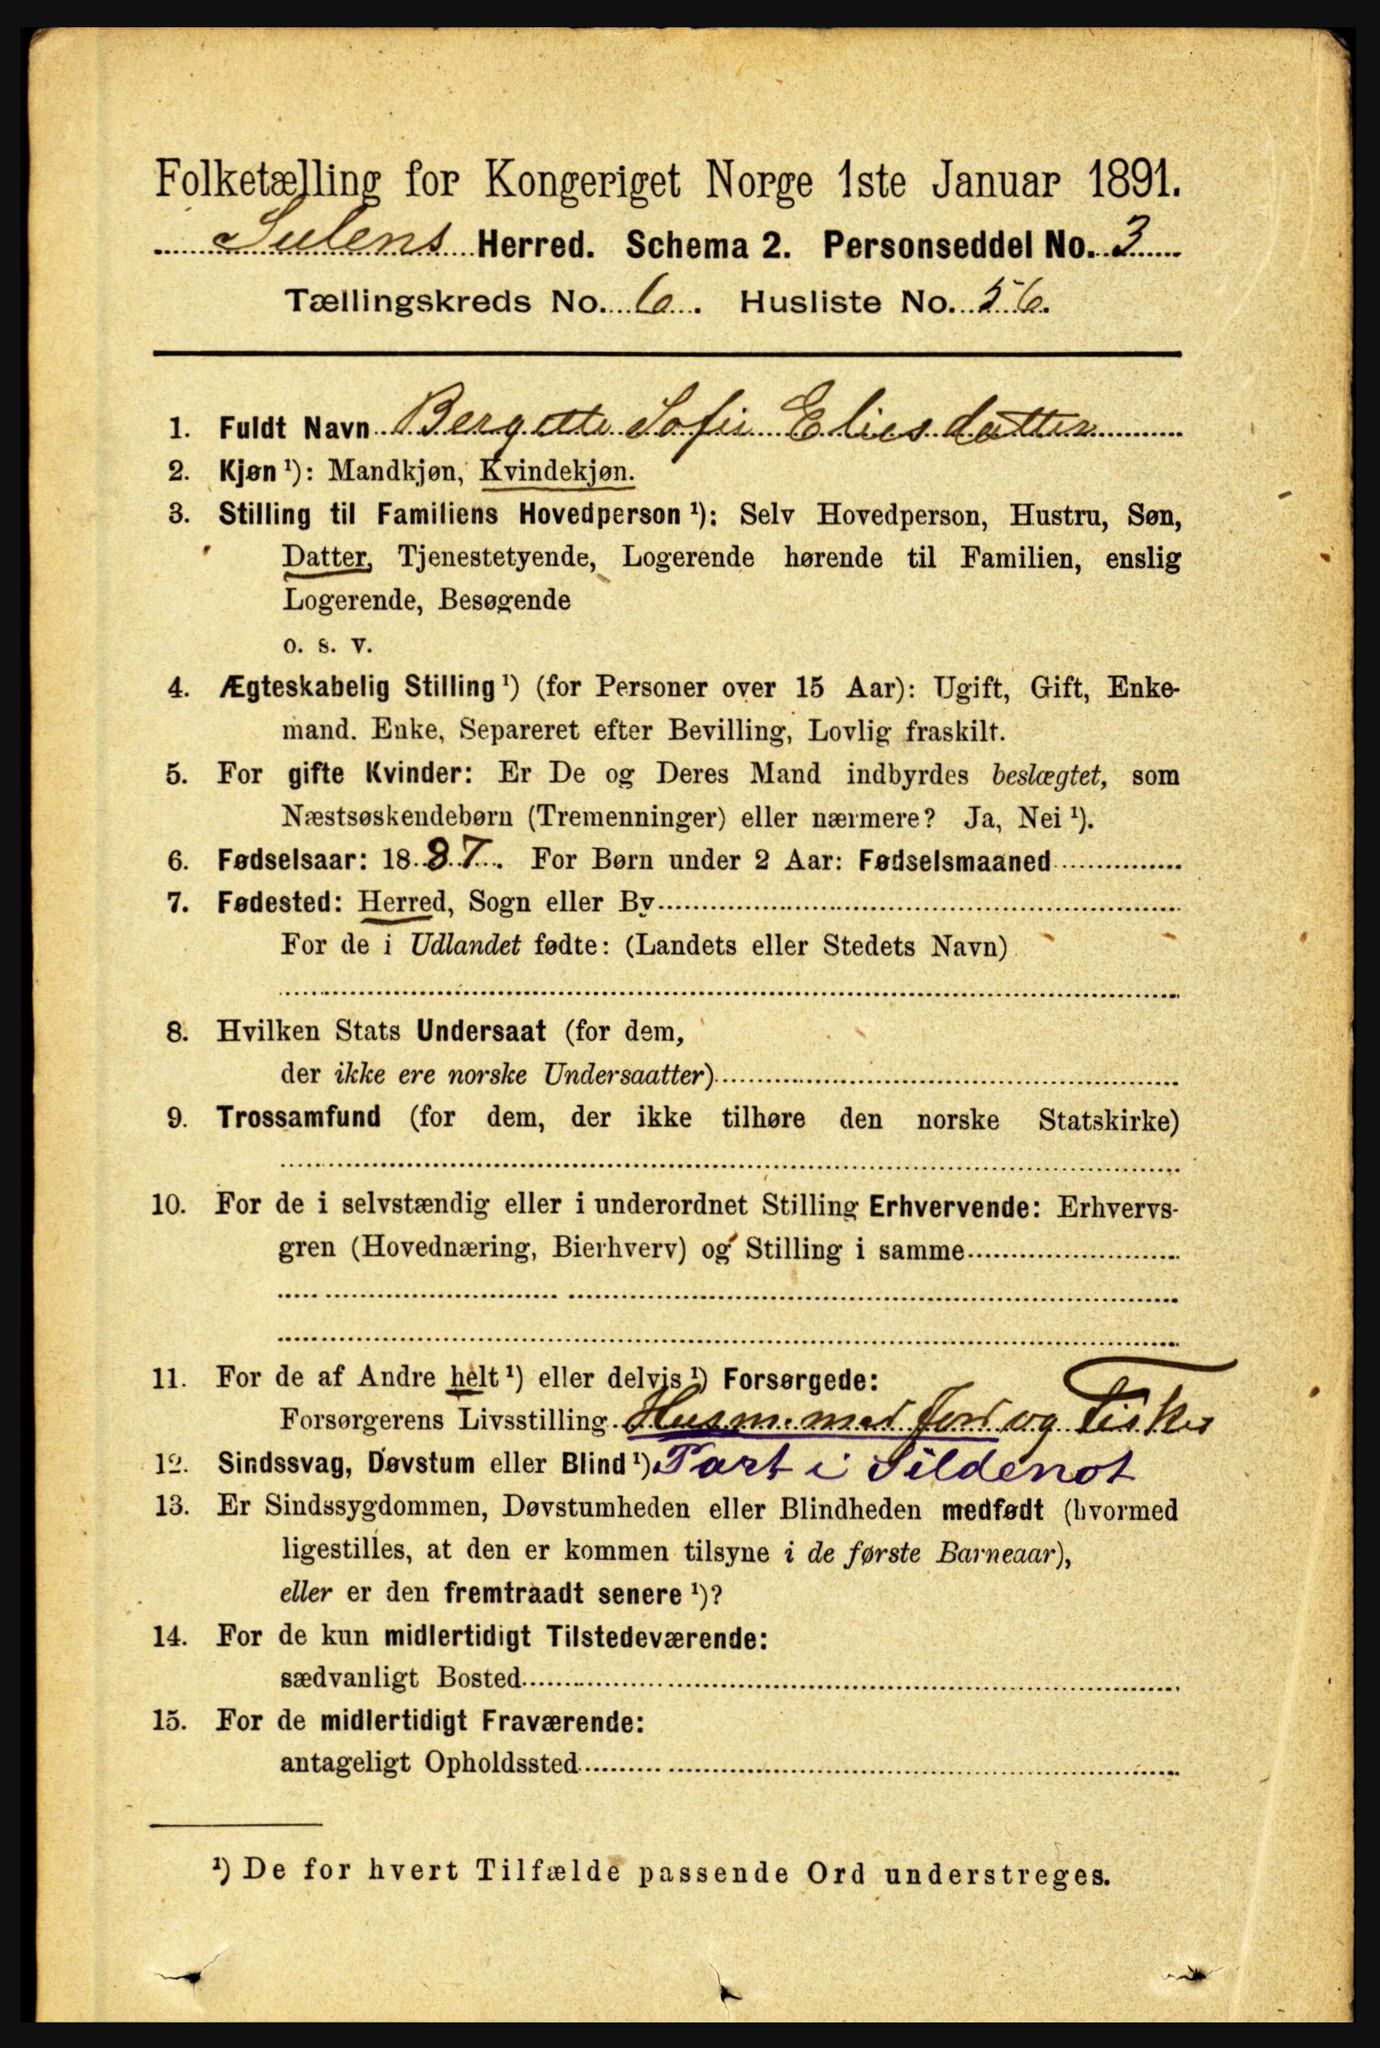 Folketælling for Kongeriget Norge 1ste Januar 1891.
Sulens Herred. Schema 2. Personseddel No. 3
Tællingskreds No. 6. Husliste No. 56.
1. Fuldt Navn Bergette Sofie Eliesdatter
2. Kjøn ¹): Mandkjøn, Kvindekjøn.
3. Stilling til Familiens Hovedperson ¹): Selv Hovedperson, Hustru, Søn,
Datter, Tjenestetyende, Logerende hørende til Familien, enslig
Logerende, Besøgende
o. s. v.
4. Ægteskabelig Stilling ¹) (for Personer over 15 Aar): Ugift, Gift, Enke-
mand. Enke, Separeret efter Bevilling, Lovlig fraskilt.
5. For gifte Kvinder: Er De og Deres Mand indbyrdes beslægtet, som
Næstsøskendebørn (Tremenninger) eller nærmere? Ja, Nei ¹).
6. Fødselsaar: 1887. For Børn under 2 Aar: Fødselsmaaned
7. Fødested: Herred, Sogn eller By
For de i Udlandet fødte: (Landets eller Stedets Navn)
8. Hvilken Stats Undersaat (for dem,
der ikke ere norske Undersaatter)
9. Trossamfund (for dem, der ikke tilhøre den norske Statskirke)
10. For de i selvstændig eller i underordnet Stilling Erhvervende: Erhvervs-
gren (Hovednæring, Bierhverv) og Stilling i samme
11. For de af Andre helt ¹) eller delvis ¹) Forsørgede:
Forsørgerens Livsstilling Husm. med Jord og Fisker
12. Sindssvag, Døvstum eller Blind ¹) Part i Sildenot
13. Er Sindssygdommen, Døvstumheden eller Blindheden medfødt (hvormed
ligestilles, at den er kommen tilsyne i de første Barneaar),
eller er den fremtraadt senere ¹)?
14. For de kun midlertidigt Tilstedeværende:
sædvanligt Bosted
15. For de midlertidigt Fraværende:
antageligt Opholdssted
¹) De for hvert Tilfælde passende Ord understreges.